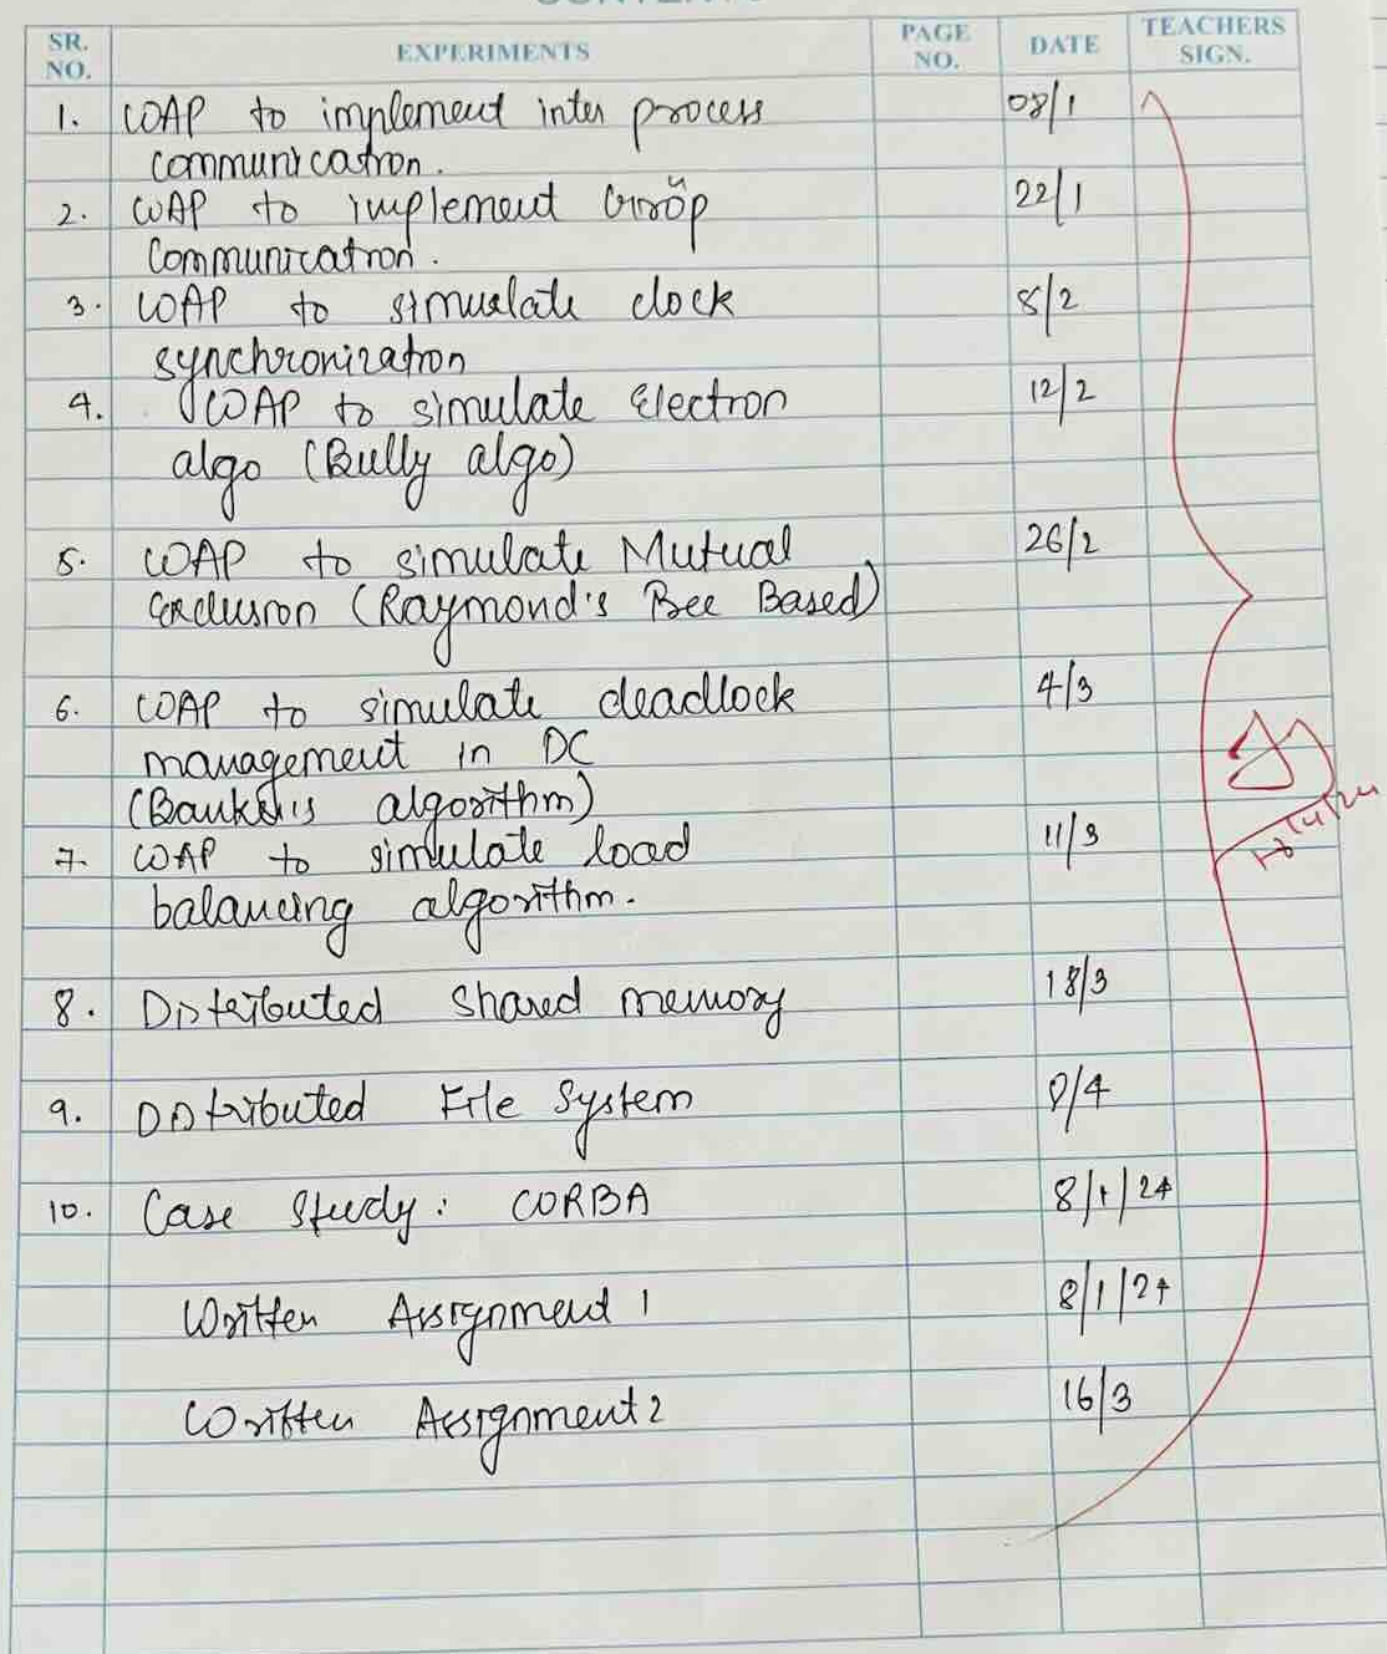 SR. NO. EXPERIMENTS PAGE NO. DATE TEACHERS SIGN.
1. WAP to implement inter process 08/1
communication.
2. WAP to implement Group 22/1
Communication.
3. WAP to simulate clock 5/2
synchronization
4. WAP to simulate Election 12/2
algo (Bully algo)
5. WAP to simulate Mutual 26/2
Exclusion (Raymond's Tree Based)
6. WAP to simulate deadlock 4/3
management in DC
(Banker's algorithm)
7. WAP to simulate load 11/3
balancing algorithm.
8. Distributed Shared memory 18/3
9. Distributed File System /4
10. Case Study: CORBA 8/1/24
Written Assignment 1 8/1/24
Written Assignment 2 16/3